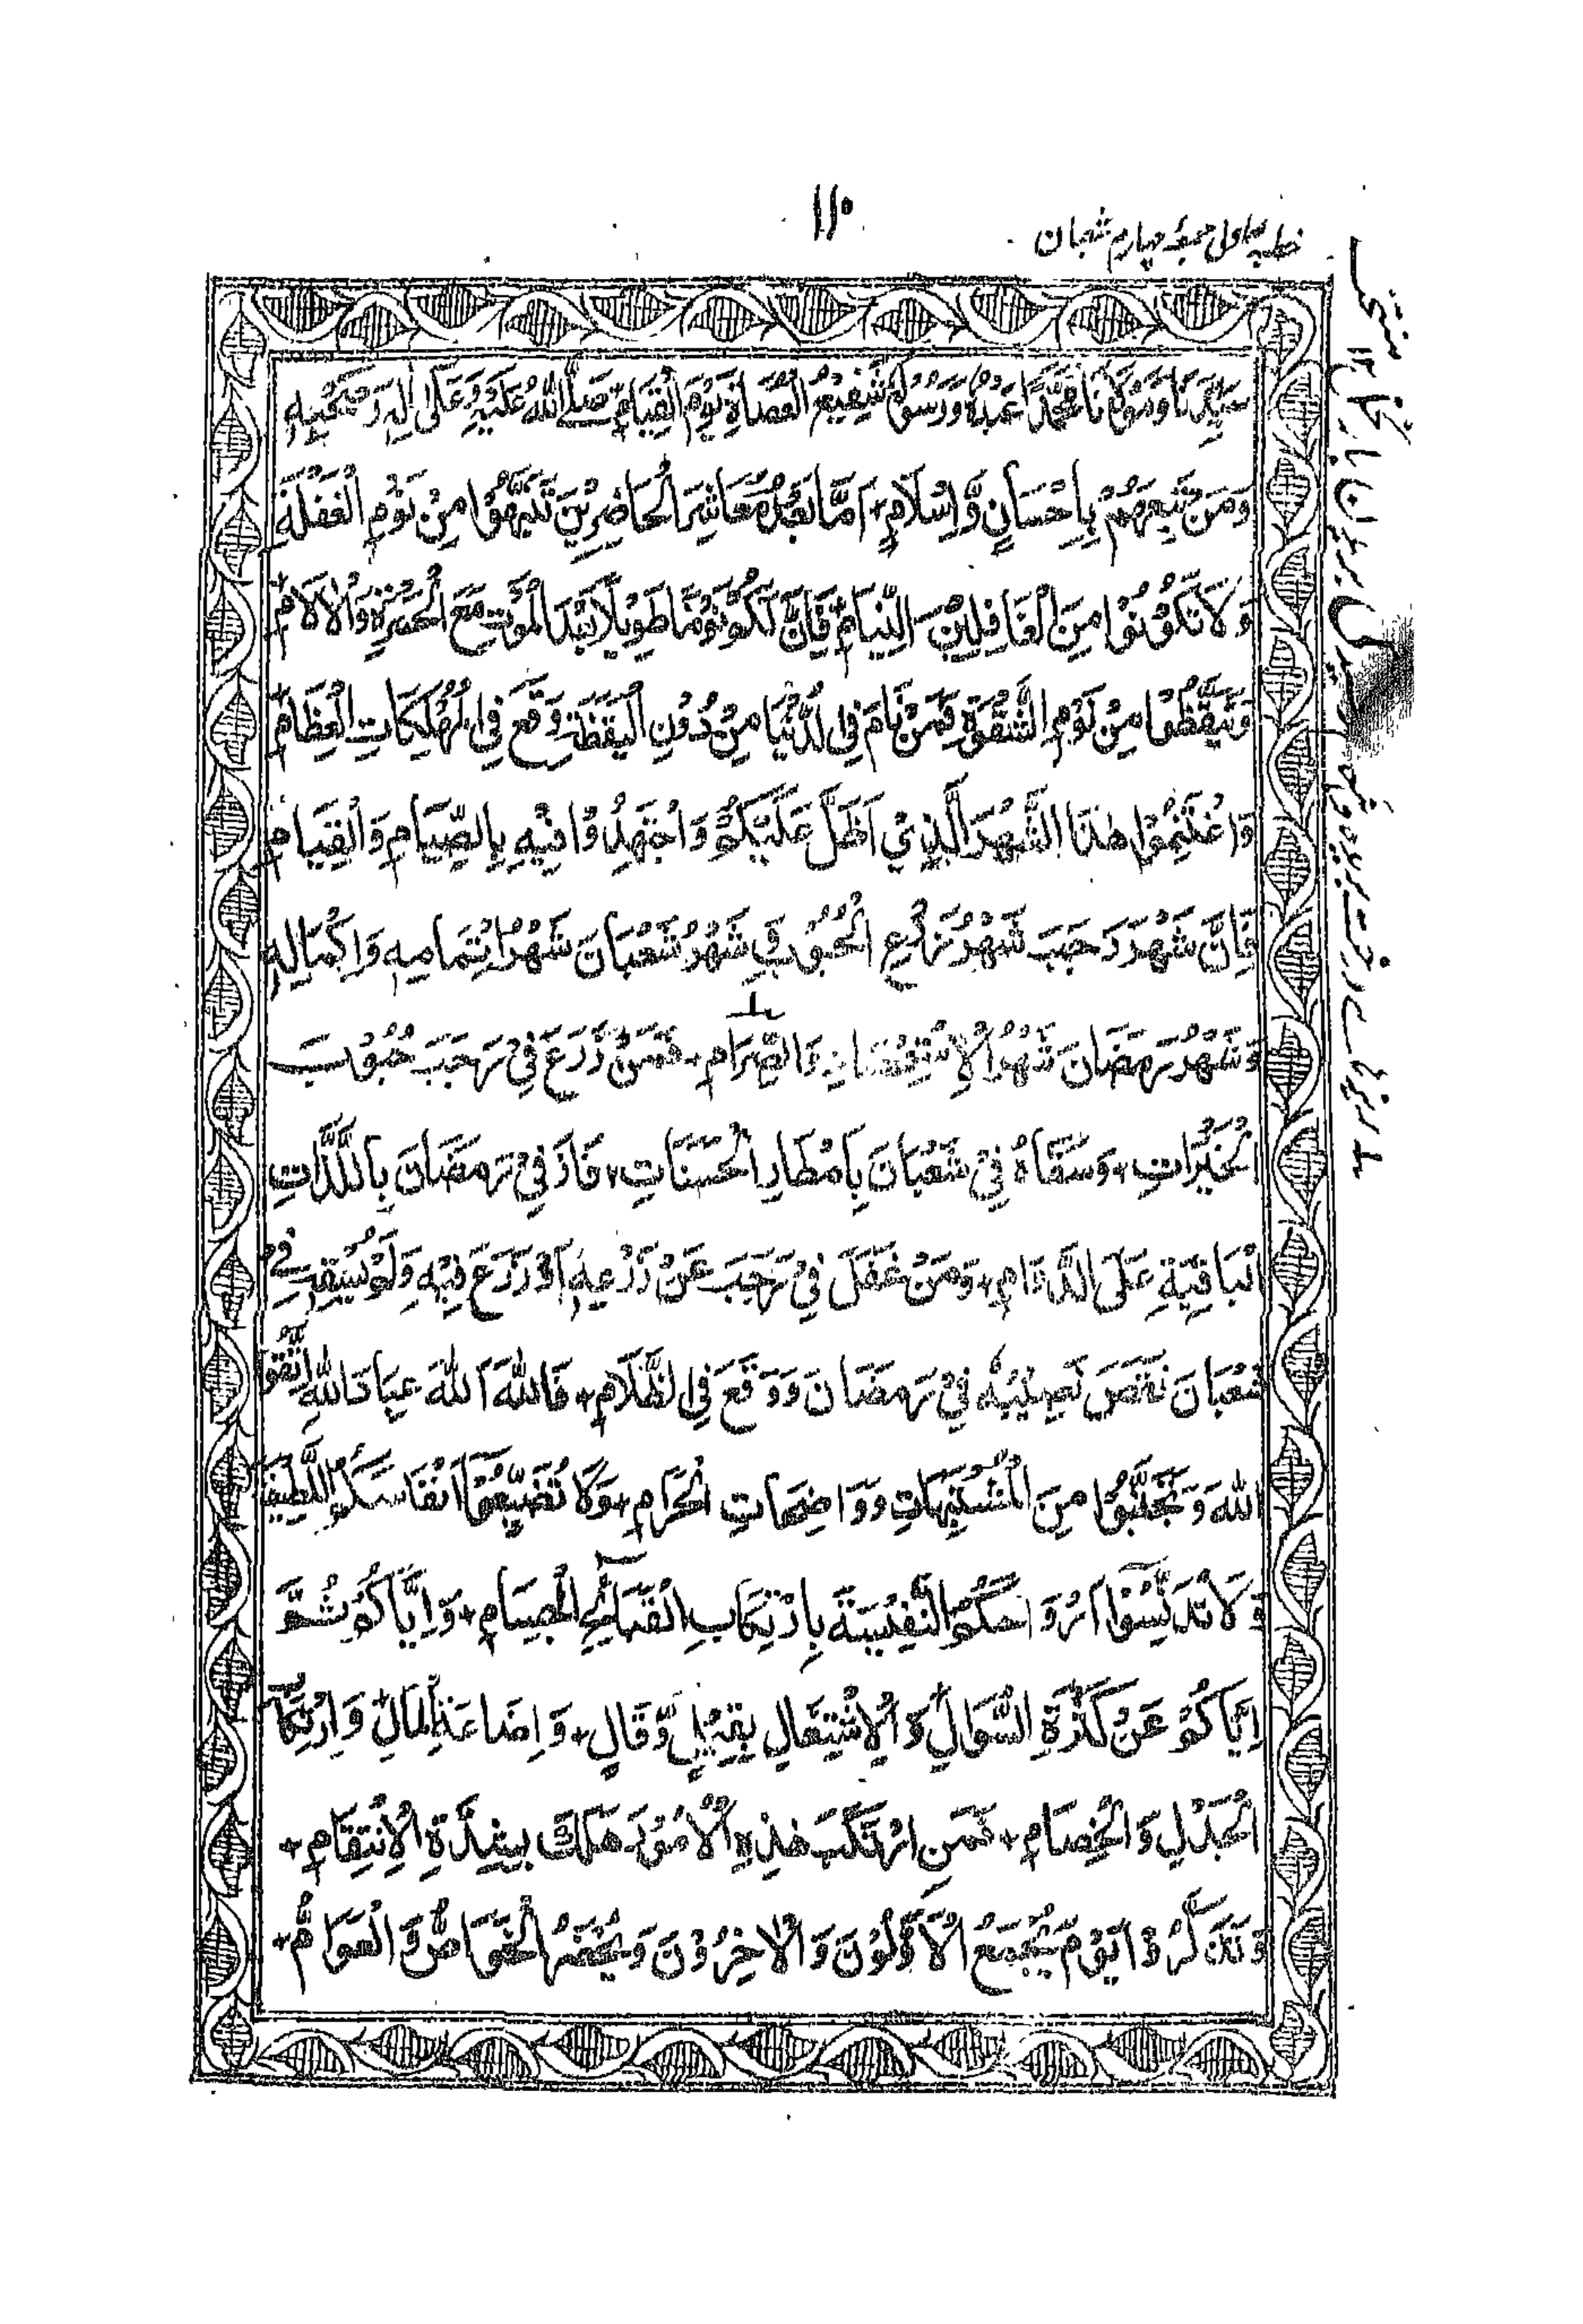 ١١٠
خطبہ اولی جمعہ چہارم شعبان
سَيِّدَنَا وَمَوْلَانَا مُحَمَّدًا عَبْدُهُ وَرَسُوْلُهُ شَفِيْعُ الْعُصَاةِ يَوْمَ الْقِيَامِ صَلَّى اللهُ عَلَيْهِ وَعَلَى اٰلِهٖ وَصَحْبِهٖ
وَمَنْ تَبِعَهُمْ بِاِحْسَانٍ وَّاِسْلَامٍ+ اَمَّا بَعْدُ مَعَاشِرَ الْحَاضِرِيْنَ تَنَبَّهُوْا مِنْ نَوْمِ الْغَفْلَةِ
وَلَا تَكُوْنُوْا مِنَ الْغَافِلِيْنَ النِّيَامِ فَاِنَّ لَكُمْ نَوْمًا طَوِيْلًا بَعْدَ الْمَوْتِ مَعَ الْحَسْرَةِ وَالْاٰلَامِ+
وَتَيَقَّظُوْا مِنْ نَوْمِ الشَّقْوَةِ فَمَنْ نَامَ فِي الدُّنْيَا مِنْ دُوْنِ الْيَقَظَةِ وَقَعَ فِي الْمُهْلِكَاتِ الْعِظَامِ
وَاغْتَنِمُوْا هٰذَا الشَّهْرَ الَّذِيْ اَظَلَّ عَلَيْكُمْ وَاجْتَهِدُوْا فِيْهِ بِالصِّيَامِ وَالْقِيَامِ
فَاِنَّ شَهْرَ رَجَبَ شَهْرُ زَرْعِ الْحُبُوْبِ وَشَهْرُ شَعْبَانَ شَهْرُ اِتْمَامِهٖ وَاِكْمَالِهٖ
وَشَهْرُ رَمَضَانَ شَهْرُ الْاِنْتِفَاعِ بِهٖ وَالصِّرَامِ+ فَمَنْ زَرَعَ فِيْ رَجَبَ حُبُوْبَ
الْخَيْرَاتِ+ وَسَقَاهُ فِيْ شَعْبَانَ بِاَمْطَارِ الْحَسَنَاتِ+ فَازَ فِيْ رَمَضَانَ بِاللَّذَّاتِ
الْبَاقِيَةِ عَلَى الدَّوَامِ+ وَمَنْ غَفَلَ فِيْ رَجَبَ عَنْ زَرْعِهٖ اَوْ زَرَعَ فِيْهِ وَلَمْ يَسْقِهٖ فِيْ
شَعْبَانَ نَقَصَ نَصِيْبُهُ فِيْ رَمَضَانَ وَوَقَعَ فِي الظَّلَامِ+ فَاللهَ اَللهَ عِبَادَ اللهِ اتَّقُوا
اللهَ وَتَجَنَّبُوْا مِنَ الْمُشْتَبِهَاتِ وَوَاضِحَاتِ الْحَرَامِ+ وَلَا تُضَيِّعُوْا اَنْفَاسَكُمُ اللَّطِيْفَةَ
وَلَا تُدَنِّسُوْا اَرْوَاحَكُمُ النَّفِيْسَةَ بِارْتِكَابِ الْقَبَائِحِ الْجِسَامِ+ وَاِيَّاكُمْ ثُمَّ
اِيَّاكُمْ عَنْ كَثْرَةِ السُّوَالِ وَالْاِشْتِغَالِ بِقِيْلٍ وَّقَالٍ+ وَاِضَاعَةِ الْمَالِ وَارْتِكَابِ
الْجَدَلِ وَالْخِصَامِ+ فَمَنِ ارْتَكَبَ هٰذِهِ الْاُمُوْرَ هَلَكَ بِشِدَّةِ الْاِنْتِقَامِ+
وَتَذَكَّرُوْا يَوْمَ يُجْمَعُ الْاَوَّلُوْنَ وَالْاٰخِرُوْنَ وَيُحْضَرُ الْخَوَاصُّ وَالْعَوَامُّ+